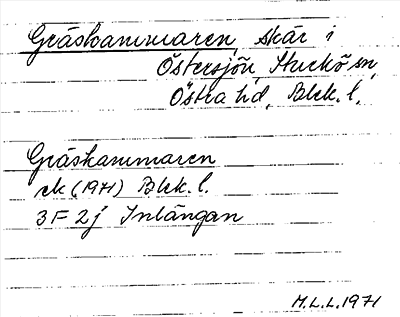 Gråskammaren, skär i
Östersjön, Sturkö sn,
Östra hd, Blek. l.
Gråskammaren
ek (1971) Blek. l.
3F 2j Inlängan
M.L.L. 1971